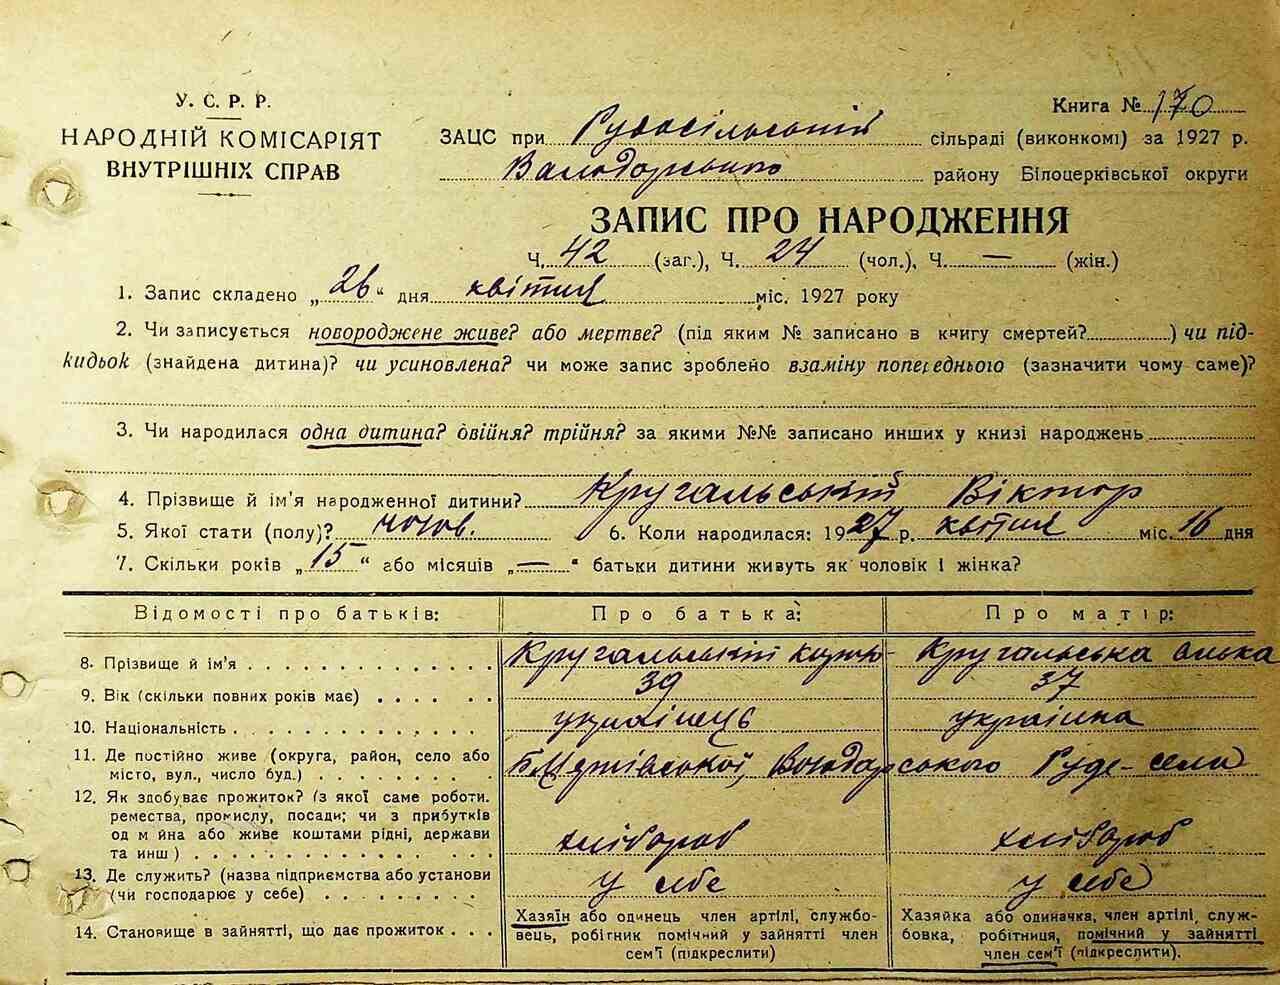 У. С. Р. Р.
НАРОДНІЙ КОМІСАРІЯТ
ВНУТРІШНІХ СПРАВ
Книга № 170
ЗАЦС при Рудосільській сільраді (виконкомі) за 1927 р.
Володарського району Білоцерківської округи
ЗАПИС ПРО НАРОДЖЕННЯ
Ч. 42 (заг.), Ч. 24 (чол.), Ч. — (жін.)
1. Запис складено „26“ дня квітня міс. 1927 року
2. Чи записується новороджене живе? або мертве? (під яким № записано в книгу смертей?) чи під-
кидьок (знайдена дитина)? чи усиновлена? чи може запис зроблено взаміну попереднього (зазначити чому саме)?
3. Чи народилася одна дитина? двійня? трійня? за якими №№ записано инших у книзі народжень
4. Прізвище й ім'я народженної дитини? Кругальський Віктор
5. Якої стати (полу)? чолов. 6. Коли народилася: 1927 р. квітня міс. 16 дня
7. Скільки років „15“ або місяців „—“ батьки дитини живуть як чоловік і жінка?
Відомості про батьків: Про батька: Про матір:
8. Прізвище й ім'я Кругальський Кругальська
9. Вік (скільки повних років має) 39 37
10. Національність українець українка
11. Де постійно живе (округа, район, село або
місто, вул., число буд.) Володарського Руде-село
12. Як здобуває прожиток? (з якої саме роботи.
ремества, промислу, посади; чи з прибутків
од майна або живе коштами рідні, держави
та инш) хлібороб хлібороб
13. Де служить? (назва підприємства або установи
(чи господарює у себе) у себе у себе
14. Становище в зайнятті, що дає прожиток
Хазяїн або одинець член артілі, службо-
вець, робітник помічний у зайнятті член
сем'ї (підкреслити)
Хазяйка або одиначка, член артілі, служ-
бовка, робітниця, помічний у зайнятті
член сем'ї (підкреслити).